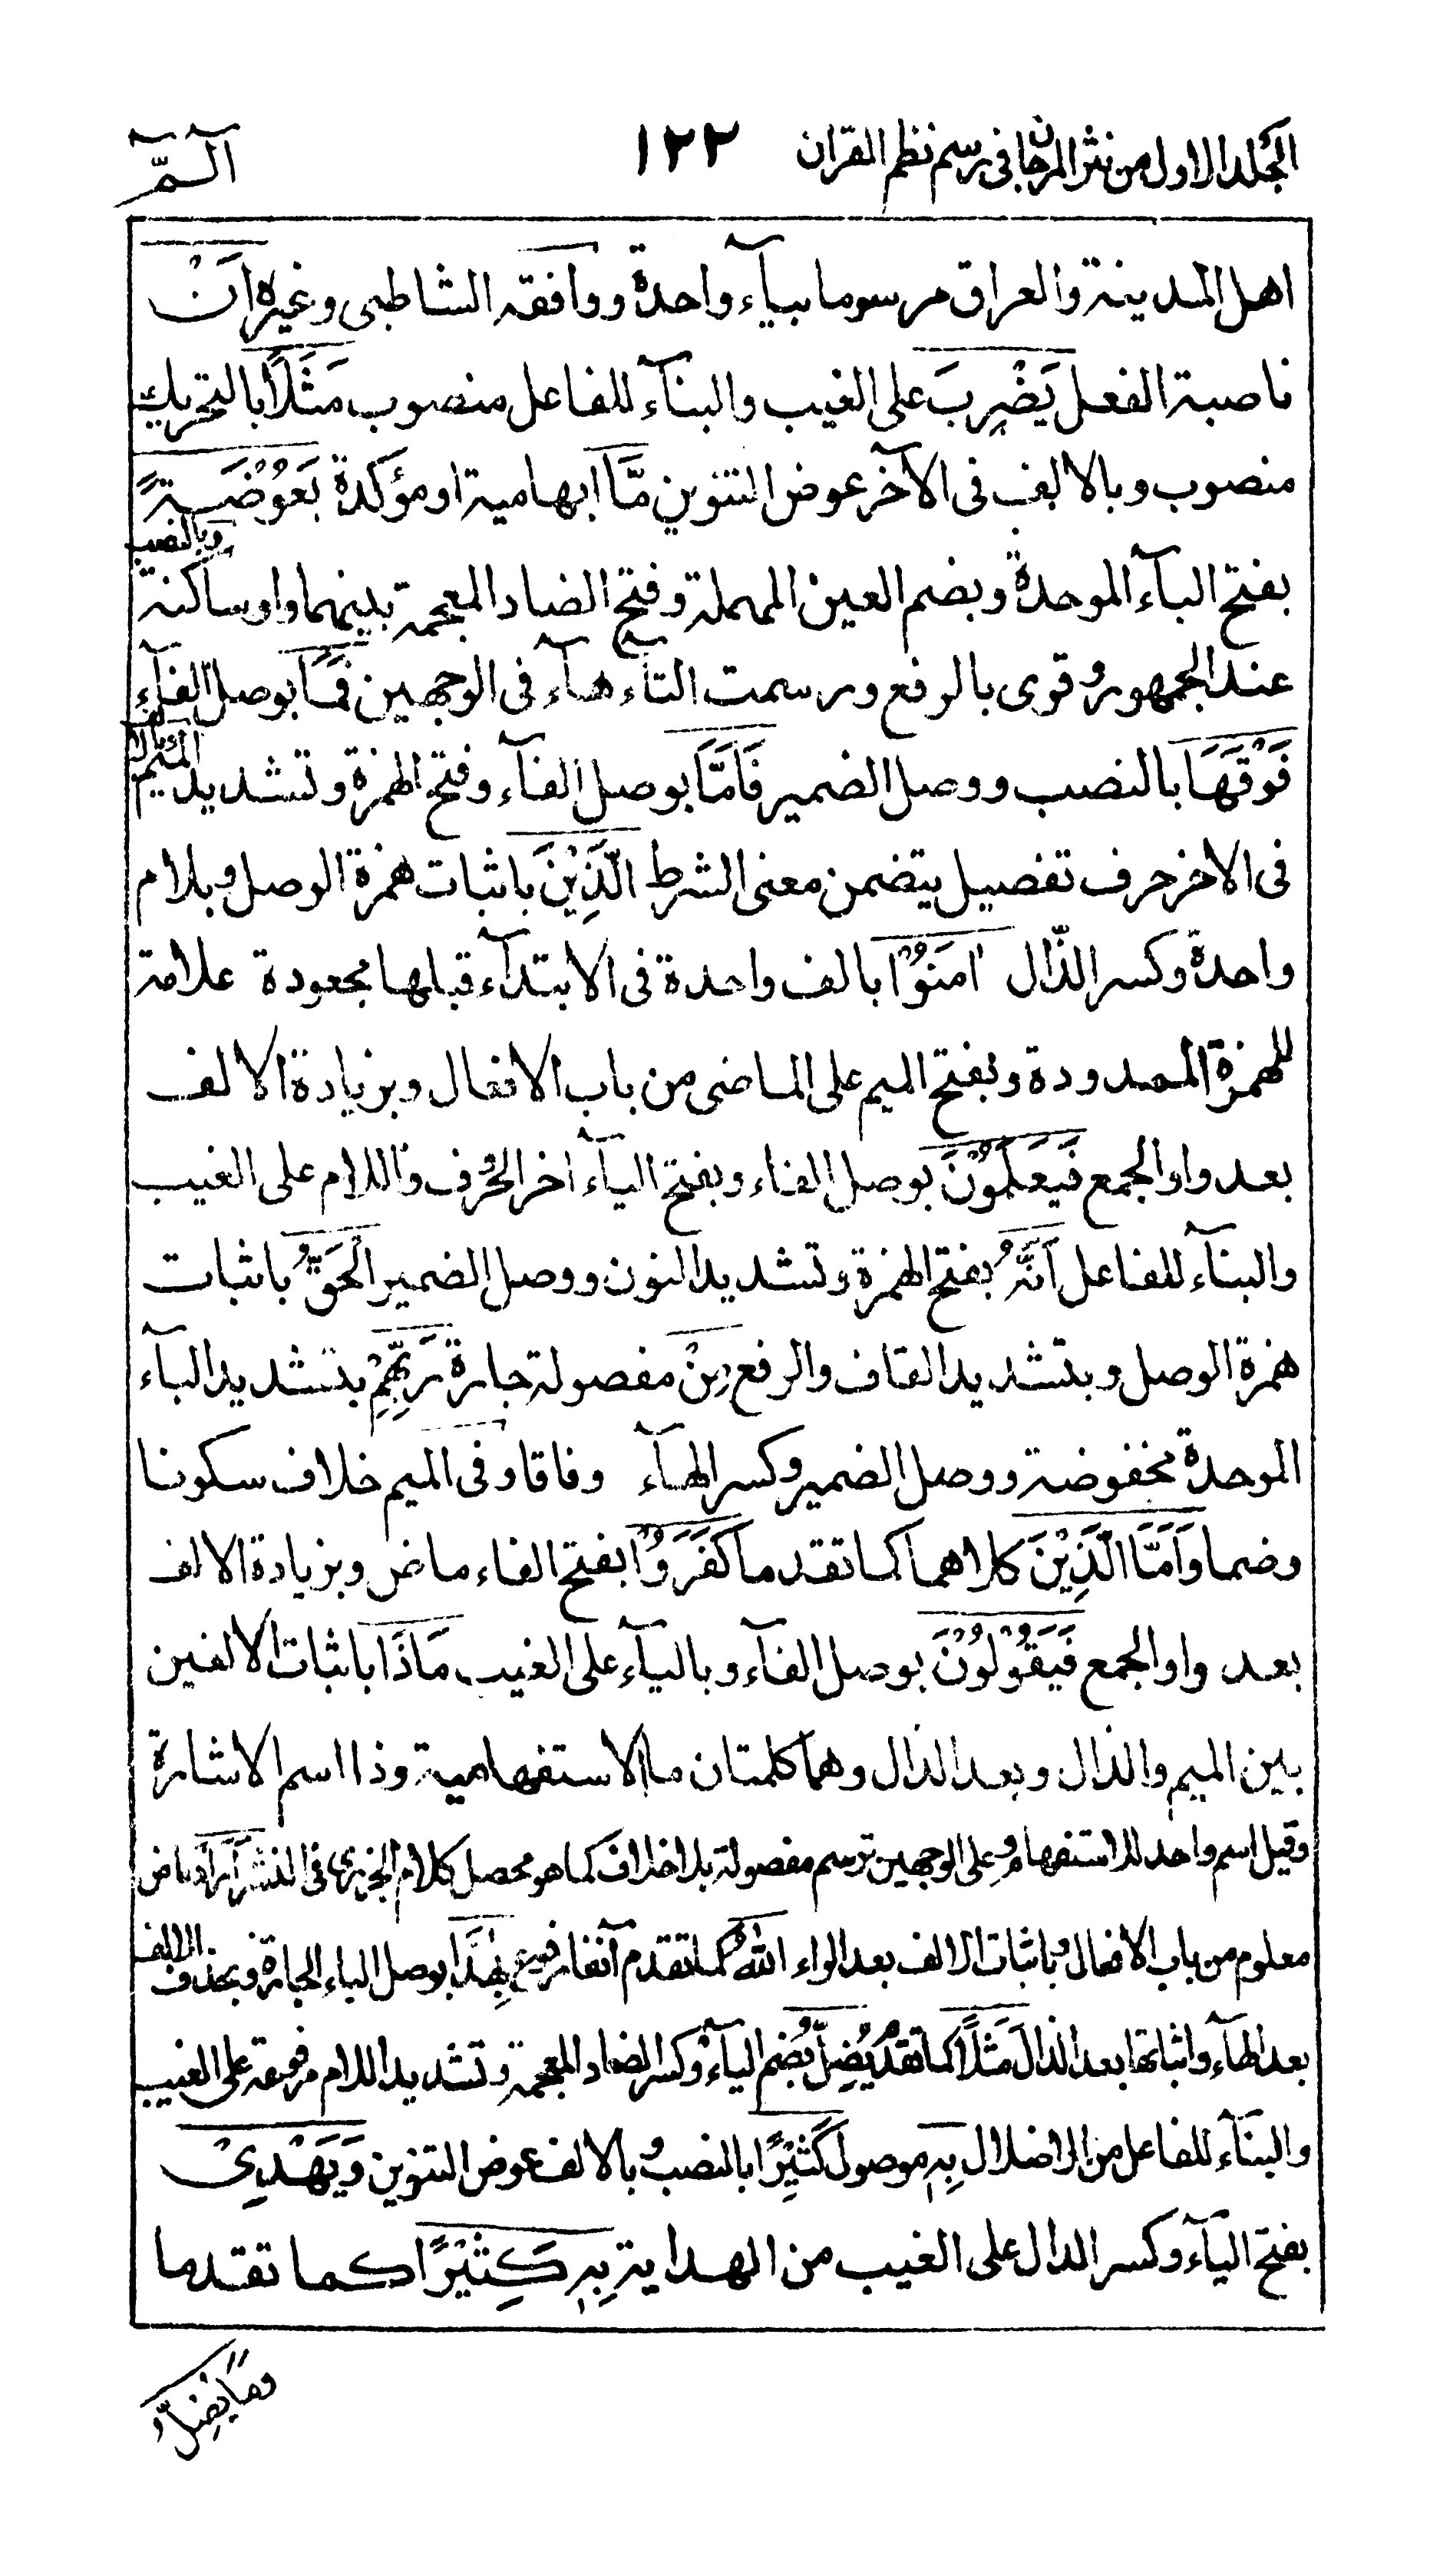 المجلد الاول من نثر المرجان فی رسم نظم القران
١٢٢
الٓمّٓ
اهل المدينة والعراق مرسوما بيآء واحدة ووافقه الشاطبی وغيره اَنْ
ناصبة الفعل يَضْرِبَ علی الغيب والبنآء للفاعل منصوب مَثَلًا بالتحريك
منصوب وبالالف فی الآخر عوض التنوين مَّا ابهامية او مؤكدة بَعُوْضَةً
وبالنصب
بفتح البآء الموحدة وبضم العين المهملة وفتح الضاد المعجمة بينهما واو ساكنة
عند الجمهور وقری بالرفع ورسمت التآء هآء فی الوجهين فَمَا بوصل الفآء
فَوْقَهَا بالنصب ووصل الضمير فَاَمَّا بوصل الفآء وفتح الهمزة وتشديد الميم
بالالف
فی الاخر حرف تفصيل يتضمن معنی الشرط الَّذِيْنَ باثبات همزة الوصل وبلام
واحدة وكسر الذّال اٰمَنُوْا بالف واحدة فی الابتدآء قبلها مجعودة علامة
للهمزة الممدودة وبفتح الميم علی الماضی من باب الافعال وبزيادة الالف
بعد واو الجمع فَيَعْلَمُوْنَ بوصل الفاء وبفتح اليآء اخر الحروف واللام علی الغيب
والبنآء للفاعل اَنَّهُ بفتح الهمزة وتشديد النون ووصل الضمير الْحَقُّ باثبات
همزة الوصل وبتشديد القاف والرفع مِنْ مفصولة جارة رَبِّهِمْ بتشديد البآء
الموحدة مخفوضة ووصل الضمير وكسر الهآء وفاقا وفی الميم خلاف سكونا
وضما وَاَمَّا الَّذِيْنَ كلاهما كما تقدما كَفَرَوُا بفتح الفاء ماض وبزيادة الالف
بعد واو الجمع فَيَقُوْلُوْنَ بوصل الفآء وباليآء علی الغيب مَاذَا باثبات الالفين
بين الميم والذال وبعد الذال وهما كلمتان ما الاستفهامية وذا اسم الاشارة
وقيل اسم واحد للاستفهام وعلی الوجهين ترسم مفصولة بلا خلاف كما هو محصل كلام الجزری فی النشر اَرَادَ ماض
معلوم من باب الافعال وباثبات الالف بعد الراء اللّٰهُ كما تقدم آنفا رفوع بِهٰذَا بوصل الباء الجارة وبحذف الالف
بعد الهآء واثباتها بعد الذال مَثَلًا كما تقدم يُضِلُّ بضم اليآء وكسر الضاد المعجمة وتشديد اللام مرفوعة علی الغيب
والبنآء للفاعل من الاضلال بِهٖ موصول كَثِيْرًا بالنصب وبالالف عوض التنوين وَيَهْدِیْ
بفتح اليآء وكسر الدال علی الغيب من الهداية بِهٖ كَثِيْرًا كما تقدما
ومَا يُضِلُّ